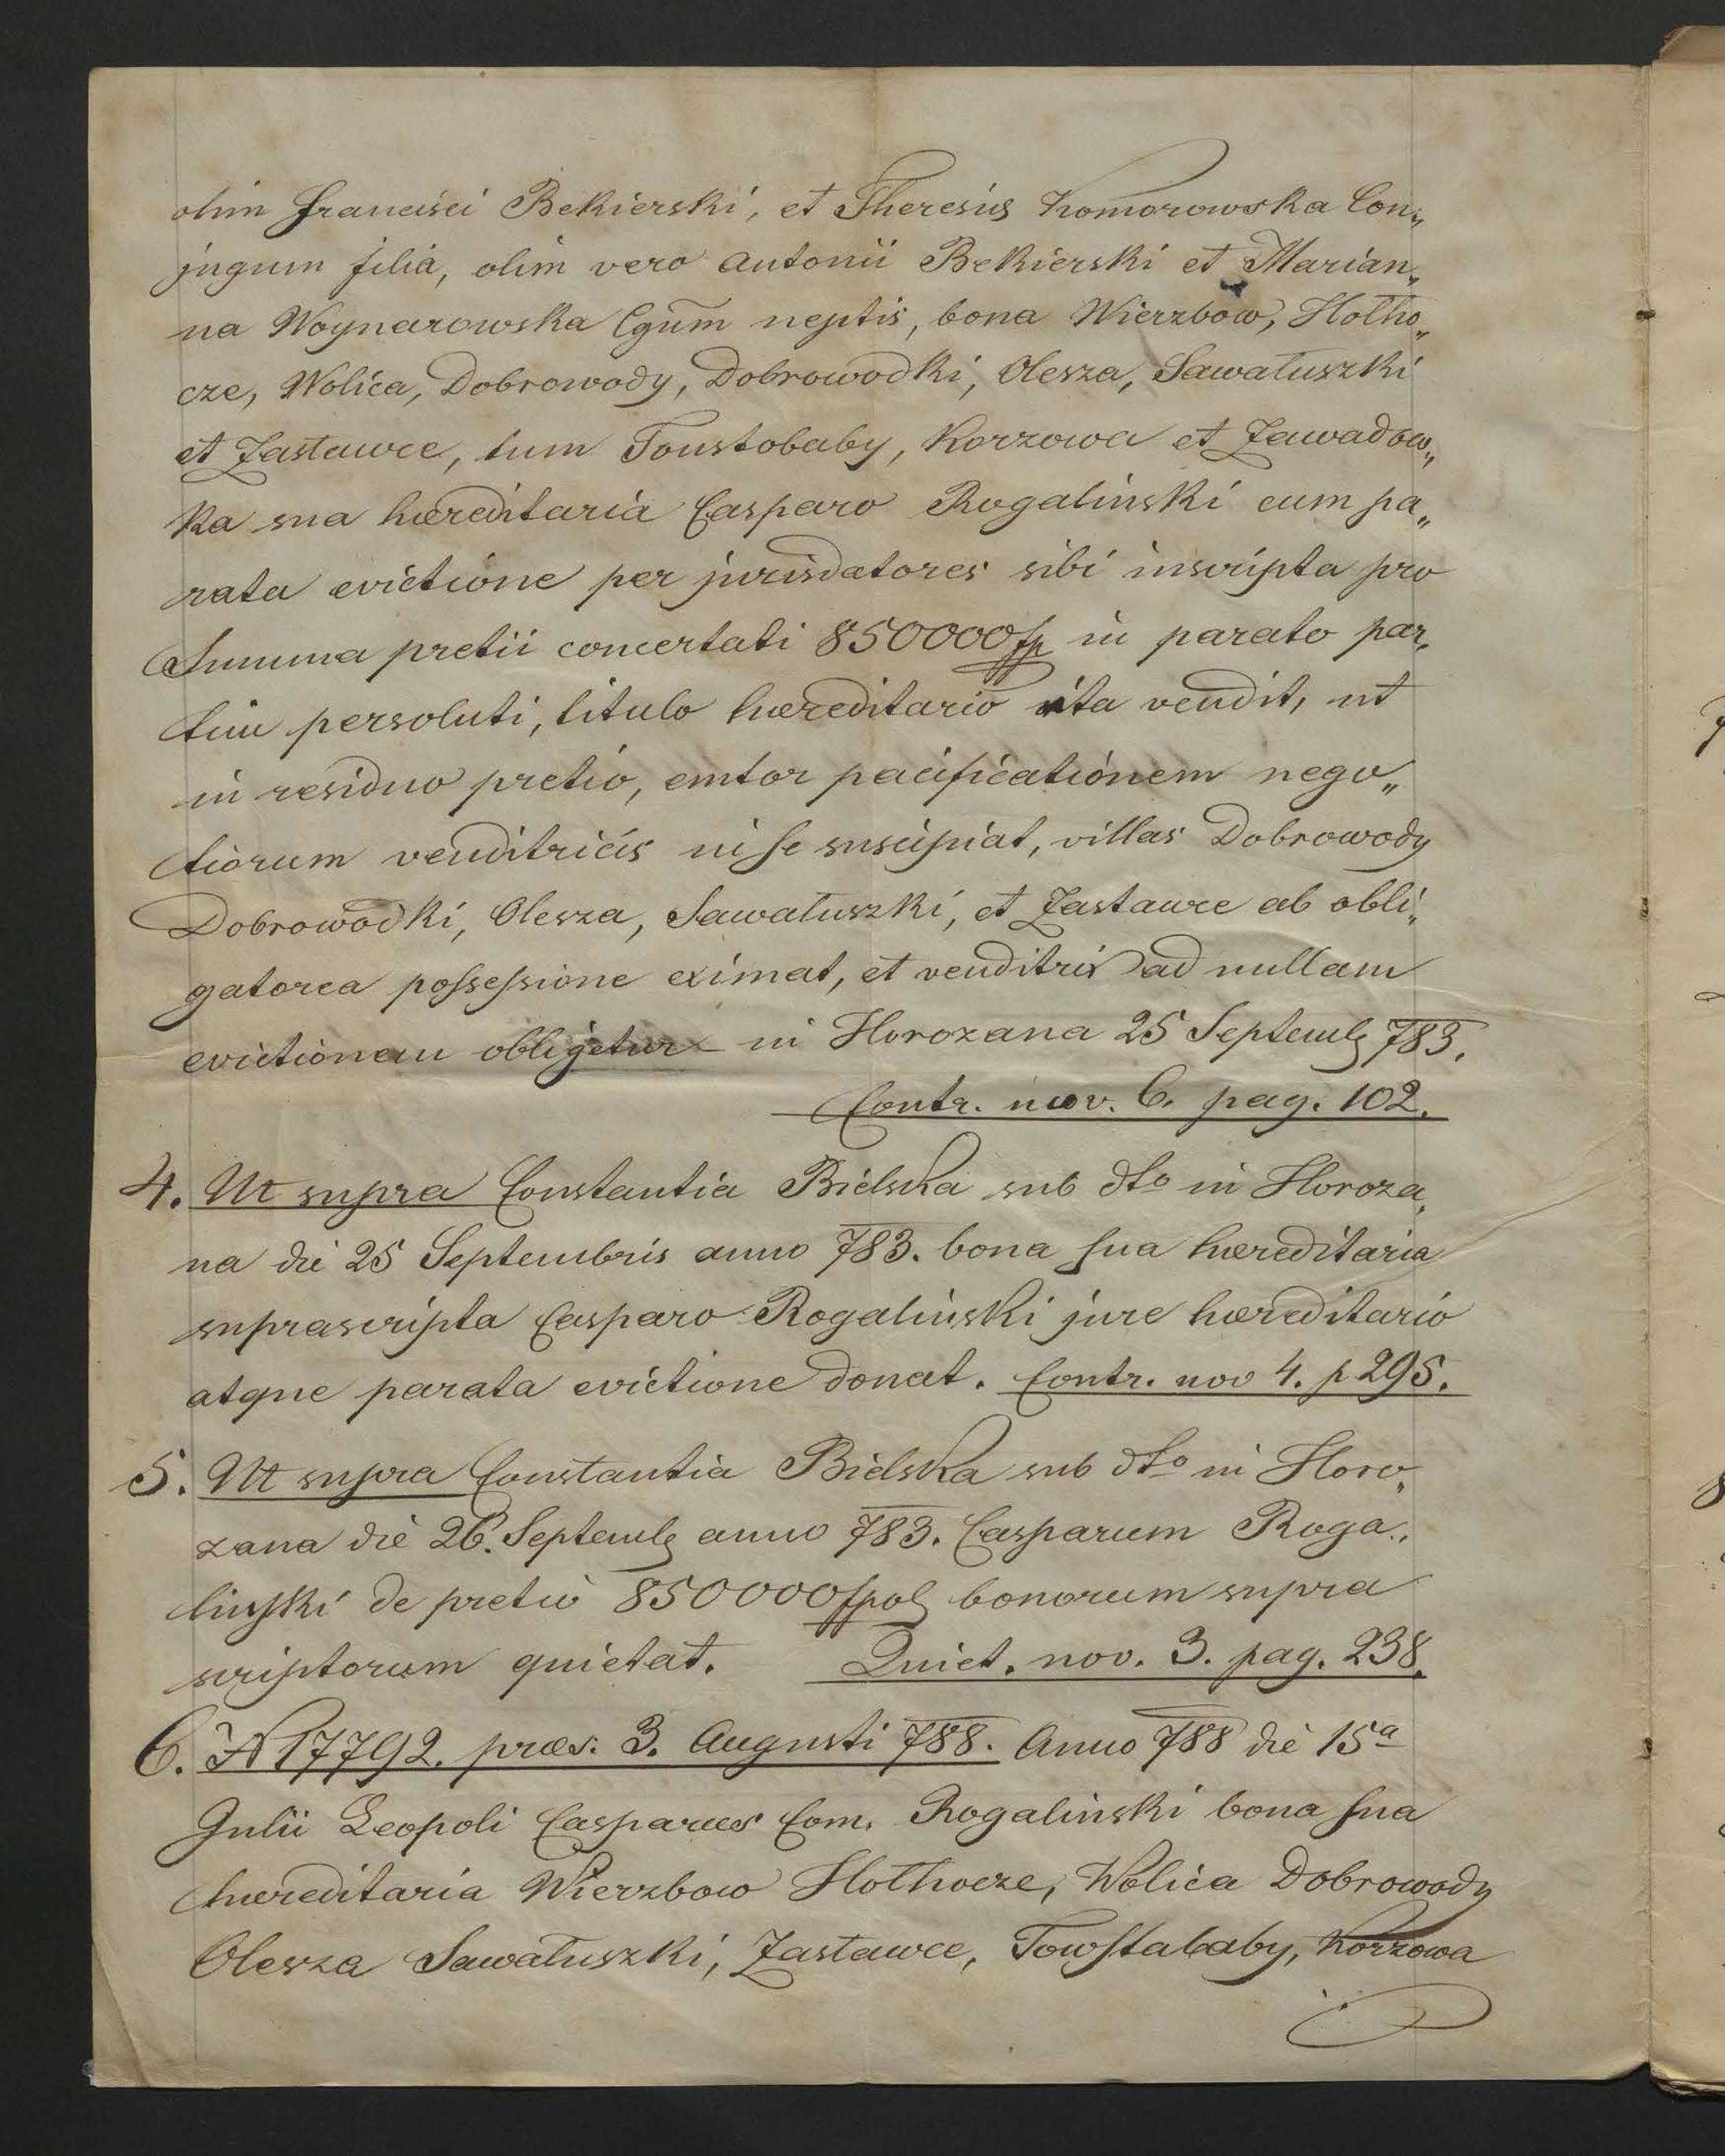 olim Francisci Bekierski, et Theresiæ Komorowska Con„
jugum filia, olim vero Antonii Bekierski et Marian„
na Woynarowska Cgum neptis, bona Wierzbow, Hołho„
cze, Wolica, Dobrowody, Dobrowodki, Olesza, Sawałuszki
et Zastawce, tum Toustobaby, Korzowa et Zawadow„
ka sua hæreditaria Casparo Rogalinski cum pa„
rata evictione per jurisdatores sibi inscripta pro
Summa pretii concertati 850000 fp in parato par„
tim persoluti, titulo hæreditario ita vendit, ut
in residuo pretio, emtor pacificationem nego„
tiorum venditricis in se suscipiat, villas Dobrowody
Dobrowodki, Olesza, Sawałuszki, et Zastawce ab obli„
gatorea possessione eximat, et venditrix ad nullam
evictionem obligetur – in Horozana 25 Septemb 783.
Contr. nov. 6. pag. 102.
4. Ut supra Constantia Bielska sub dto in Horoza„
na die 25 Septembris anno 783. bona sua hæreditaria
suprascripta Casparo Rogalinski jure hæreditario
atque parata evictione donat. Contr. nov 4. p 295.
5. Ut supra Constantia Bielska sub dto in Horo„
zana die 26. Septemb anno 783. Casparum Roga„
linski de pretio 850000 fpol bonorum supra
scriptorum quietat. Quiet. nov. 3. pag. 238.
6. N 17792. præs. 3. Augusti 788. Anno 788 die 15a
Julii Leopoli Casparus Com. Rogalinski bona sua
hæreditaria Wierzbow Hołhocze, Wolica Dobrowody
Olesza Sawałuszki, Zastawce, Towstababy, Korzowa